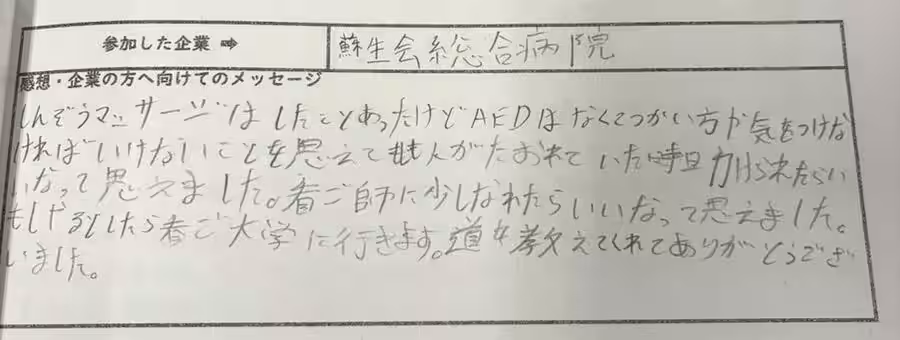 参加した企業 ⇨ 蘇生会総合病院
感想・企業の方へ向けてのメッセージ
しんぞうマッサージはしたことあったけどAEDはなくてつかい方が気をつけな
ければいけないことを思えても人がたおれていた時自力けられたらい
いなって思えました。看ご師に少しなれたらいいなって思えました。
もしやるとしたら看ご大学に行きます。道を教えてくれてありがとうござ
いました。